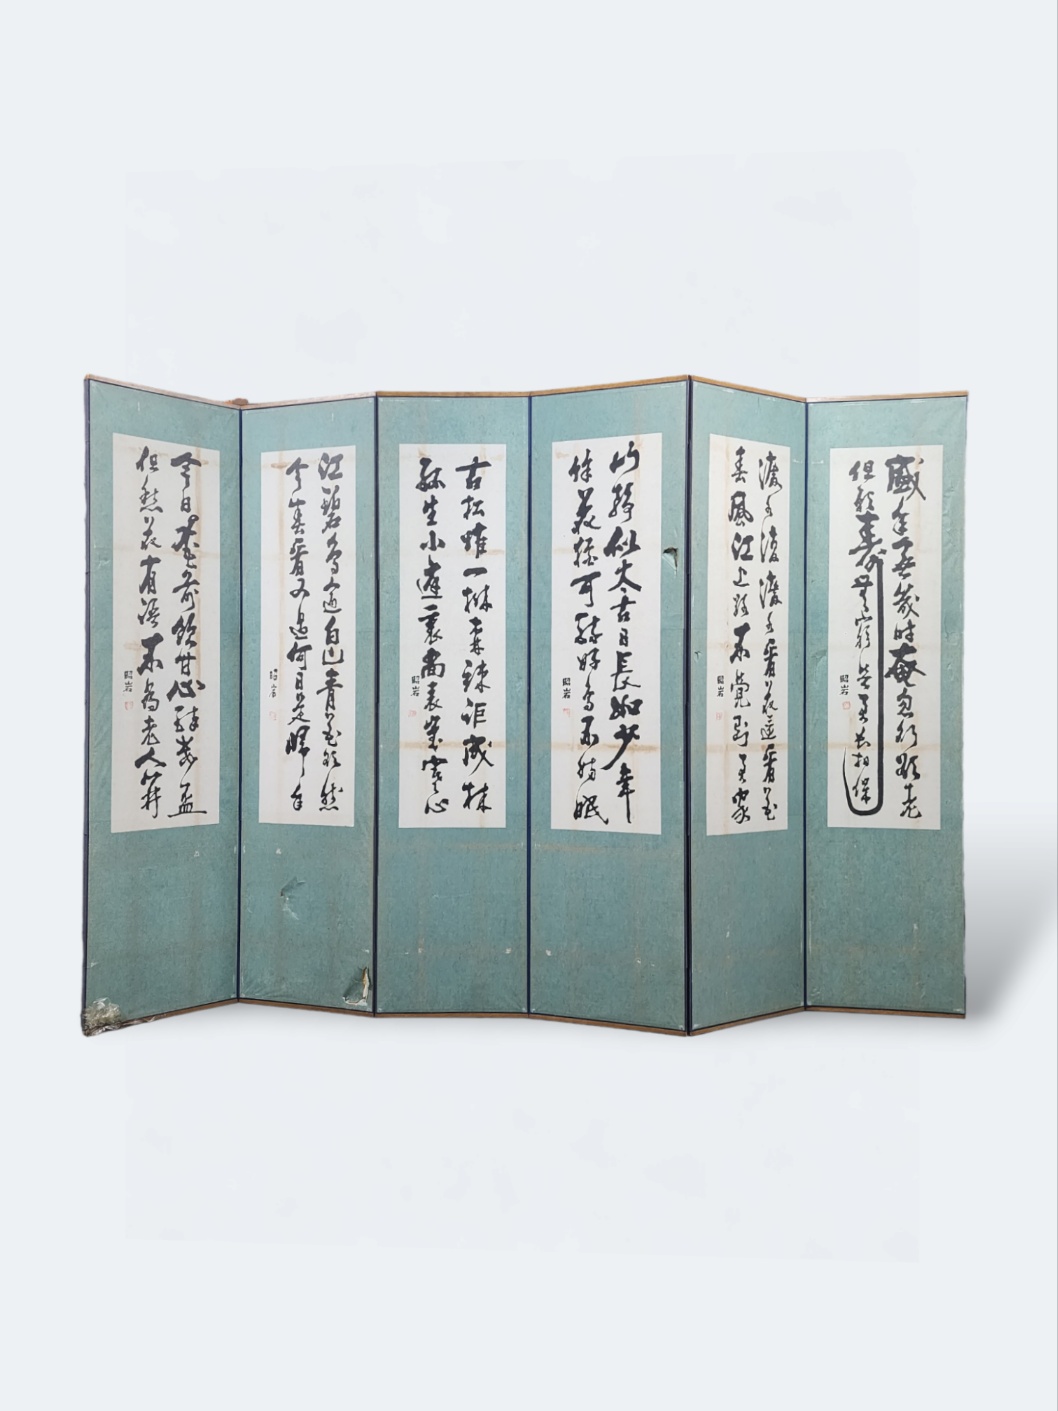 盛年無幾時奄忽行欲老
但願壽無窮與君長相保
昭岩
渡水復渡水看花還看花
春風江上路不覺到君家
昭岩
山靜似太古日長如少年
餘花猶可醉好鳥不妨眠
昭岩
古松惟一樹森竦詎成林
孤生小庭裏尚表歲寒心
昭岩
江碧鳥逾白山青花欲然
今春看又過何日是歸年
昭岩
今日花前飲甘心醉數盃
但愁花有語不爲老人開
昭岩